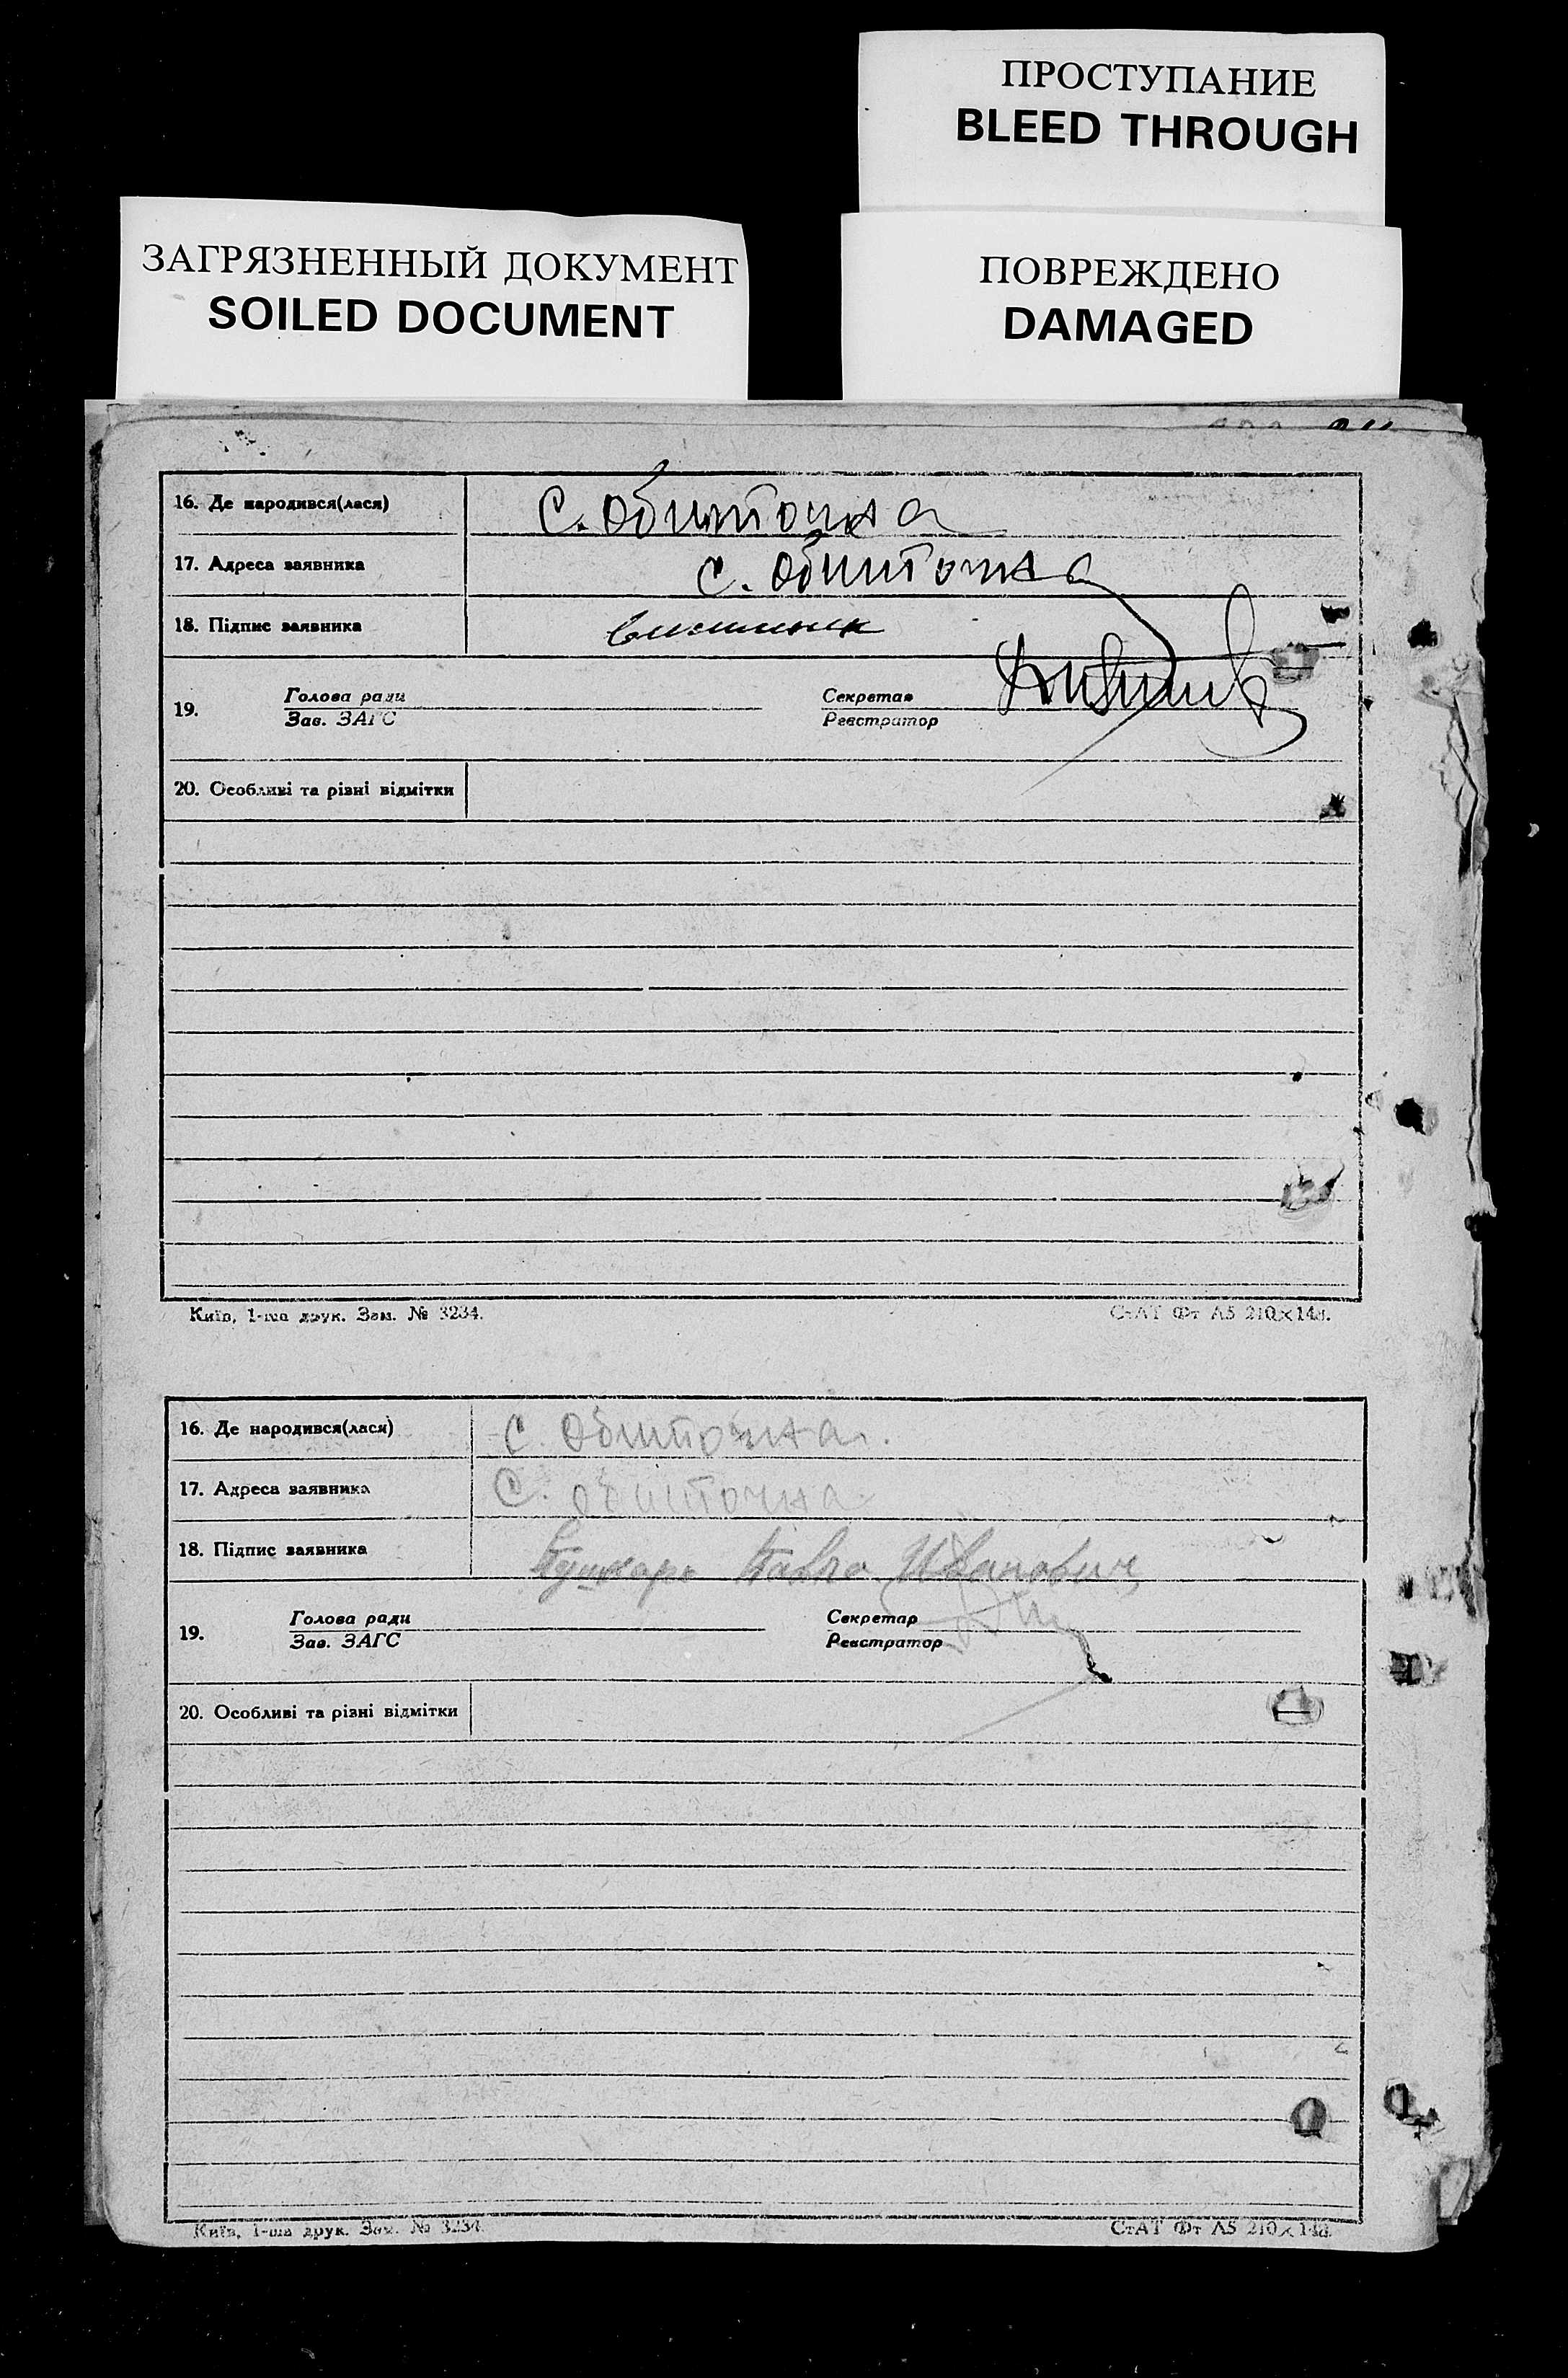 ПРОСТУПАНИЕ
BLEED THROUGH
ЗАГРЯЗНЕННЫЙ ДОКУМЕНТ
SOILED DOCUMENT
ПОВРЕЖДЕНО
DAMAGED
16. Де народився(лася) С. Обиточна
17. Адреса заявника С. Обиточна
18. Підпис заявника
19. Голова ради Секретар
Зав. ЗАГС Реєстратор
20. Особливі та різні відмітки
Київ, 1-ша друк. Зам. № 3234. СтАТ Фт А5 210×148.
16. Де народився(лася) С. Обиточна.
17. Адреса заявника С. Обиточна
18. Підпис заявника Пушкарь Павло Иванович
19. Голова ради Секретар
Зав. ЗАГС Реєстратор
20. Особливі та різні відмітки
Київ, 1-ша друк. Зам. № 3234. СтАТ Фт А5 210×148.